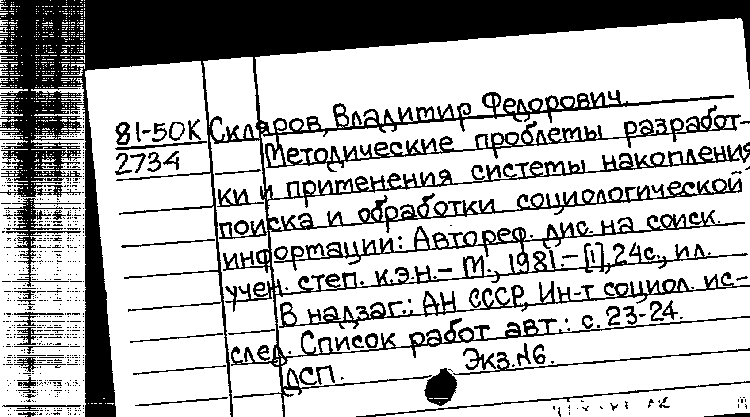 81-50К Скляров, Владимир Федорович.
2734 Методические проблемы разработ-
ки и применения системы накопления
поиска и обработки социологической
информации: Автореф. дис. на соиск.
учен. степ. к.э.н. – М., 1981. – [1], 24с., ил.
В надзаг.: АН СССР, Ин-т социол. ис-
след. Список работ авт.: с. 23-24.
ДСП. Экз.№6.